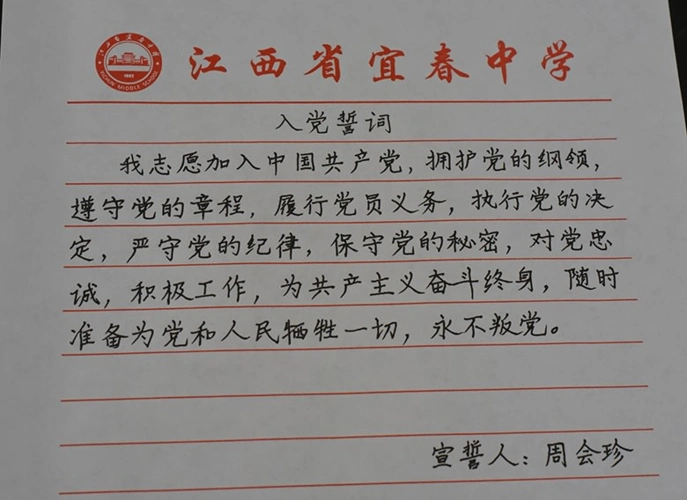 江西省宜春中学
YICHUN MIDDLE SCHOOL
入党誓词
我志愿加入中国共产党，拥护党的纲领，
遵守党的章程，履行党员义务，执行党的决
定，严守党的纪律，保守党的秘密，对党忠
诚，积极工作，为共产主义奋斗终身，随时
准备为党和人民牺牲一切，永不叛党。
宣誓人：周会珍